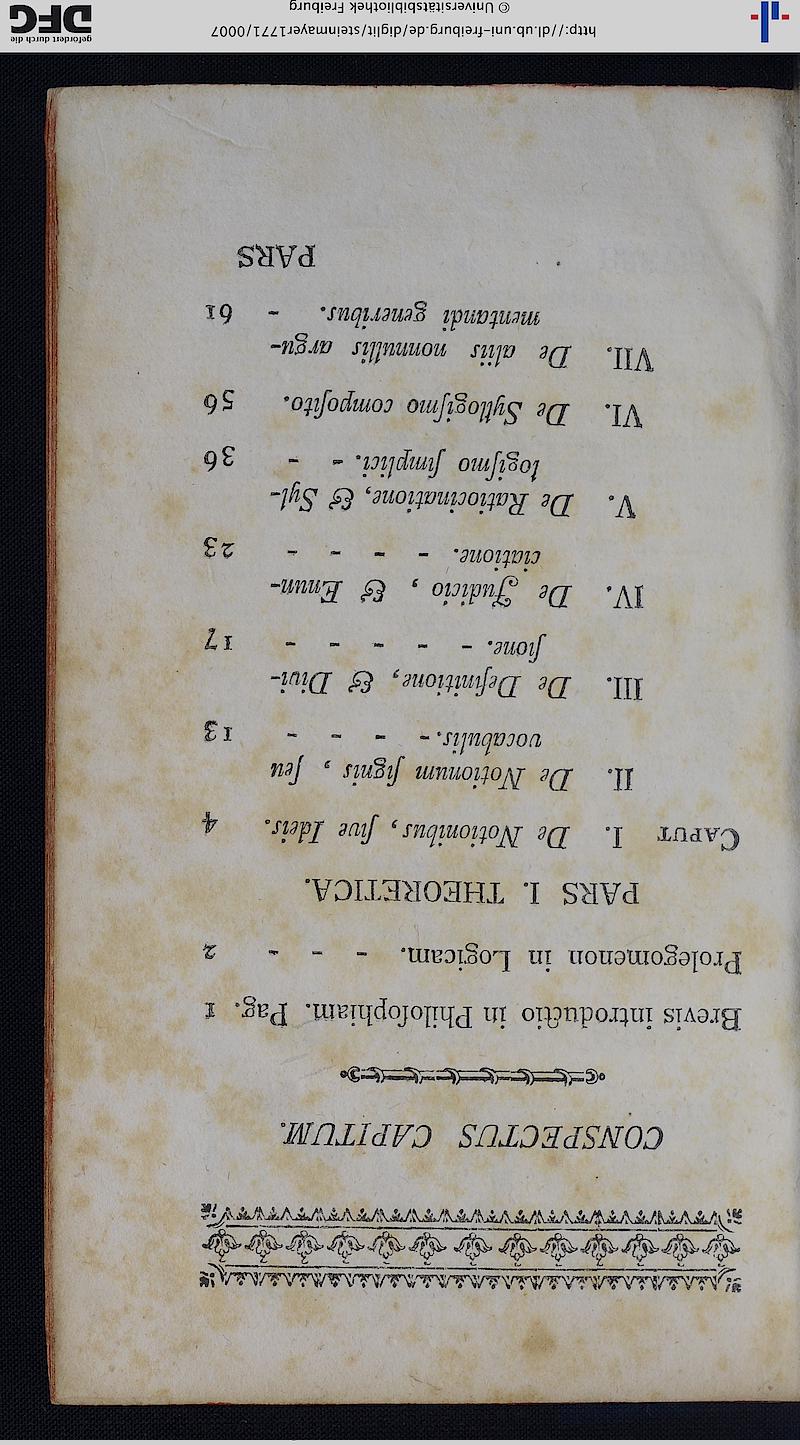 CONSPECTUS CAPITUM.
Brevis introductio in Philoſophiam. Pag. 1
Prolegomenon in Logicam. - - - 2
PARS I. THEORETICA.
CAPUT I. De Notionibus, ſive Ideis. 4
II. De Notionum ſignis, ſeu
vocabulis. - - - - 13
III. De Definitione, & Divi-
ſione. - - - - - 17
IV. De Judicio, & Enun-
ciatione. - - - - 23
V. De Ratiocinatione, & Syl-
logiſmo ſimplici. - - - 36
VI. De Syllogiſmo compoſito. 56
VII. De aliis nonnullis argu-
mentandi generibus. - 61
PARS
http://dl.ub.uni-freiburg.de/diglit/steinmayer1771/0007
© Universitätsbibliothek Freiburg
gefördert durch die
DFG